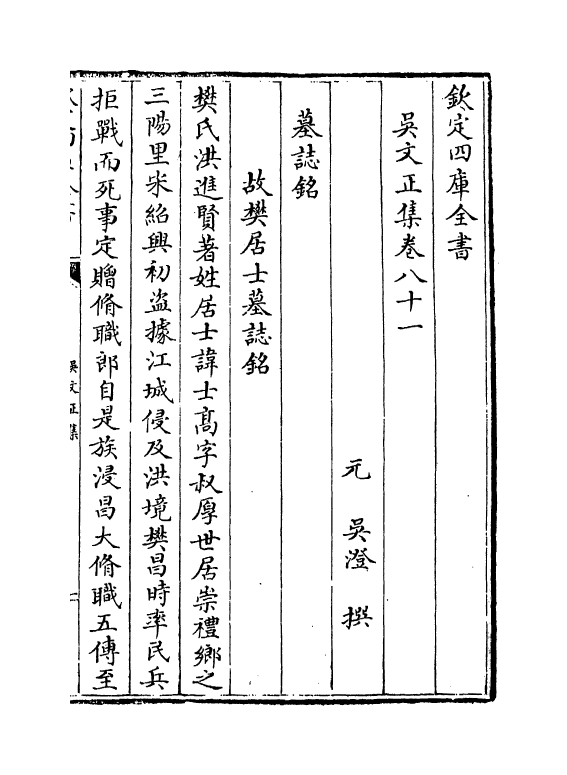 欽定四庫全書
吳文正集卷八十一
元 吳澄 撰
墓誌銘
故樊居士墓誌銘
樊氏洪進賢著姓居士諱士髙字叔厚世居崇禮鄉之
三陽里宋紹興初盗據江城侵及洪境樊昌時率民兵
拒戰而死事定贈脩職郎自是族浸昌大脩職五傳至
吳文正集